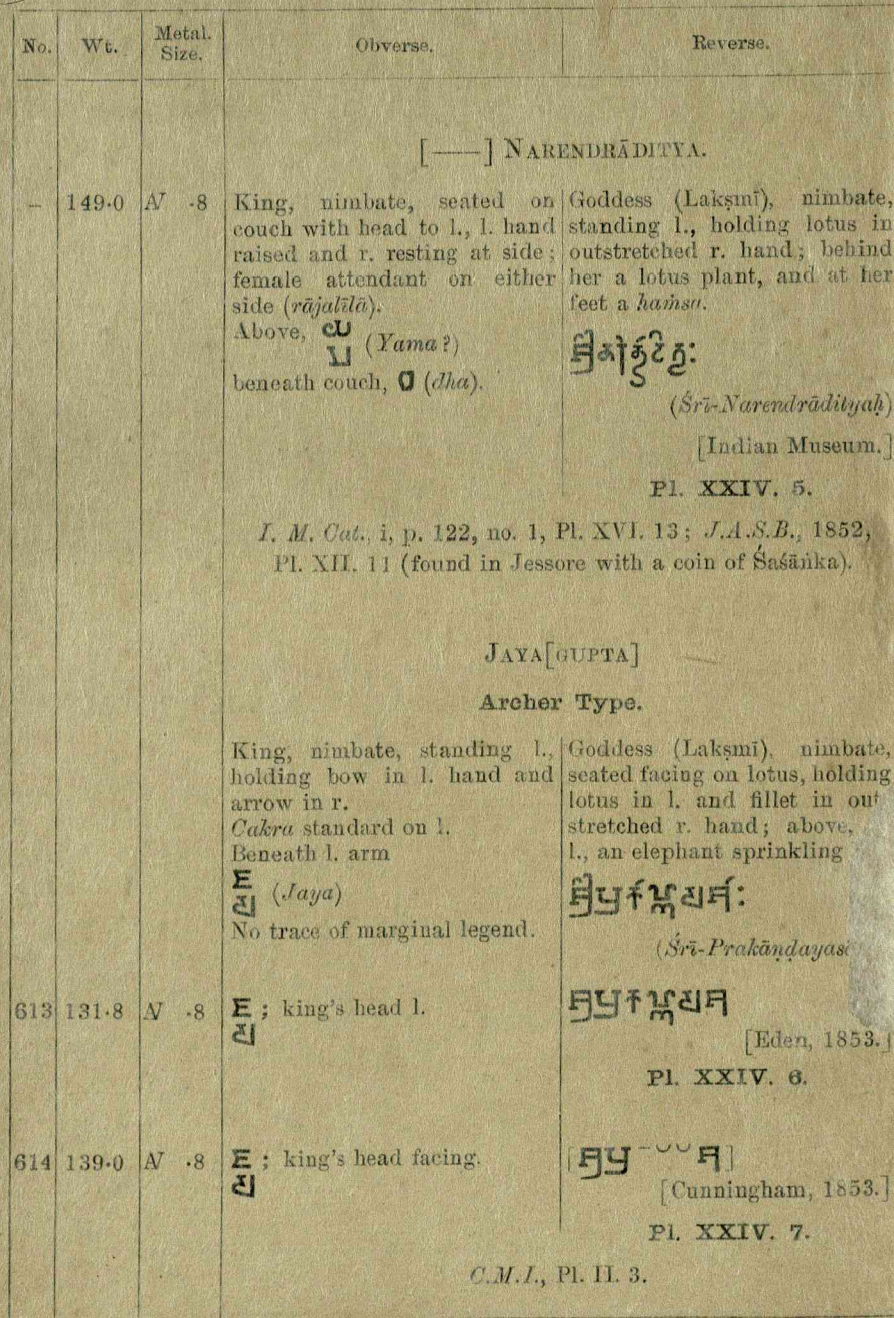 No. Wt. Metal. Size. Obverse. Reverse.
[——] NARENDRĀDITYA.
– 149·0 N ·8
King, nimbate, seated on
couch with head to l., l. hand
raised and r. resting at side;
female attendant on either
side (rājalīlā).
Above, (Yama?)
beneath couch, (dha).
Goddess (Lakṣmī), nimbate,
standing l., holding lotus in
outstretched r. hand; behind
her a lotus plant, and at her
feet a haṁsa.
(Śrī-Narendrādityaḥ)
[Indian Museum.]
Pl. XXIV. 5.
I. M. Cat., i, p. 122, no. 1, Pl. XVI. 13; J.A.S.B., 1852,
Pl. XII. 11 (found in Jessore with a coin of Śaśāṅka).
JAYA[GUPTA]
Archer Type.
King, nimbate, standing l.,
holding bow in l. hand and
arrow in r.
Cakra standard on l.
Beneath l. arm
(Jaya)
No trace of marginal legend.
Goddess (Lakṣmī), nimbate,
seated facing on lotus, holding
lotus in l. and fillet in out
stretched r. hand; above,
l., an elephant sprinkling
(Śrī-Prakāṇḍayaśa
613 131·8 N ·8
; king's head l.
[Eden, 1853.]
Pl. XXIV. 6.
614 139·0 N ·8
; king's head facing.
[Cunningham, 1853.]
Pl. XXIV. 7.
C.M.I., Pl. II. 3.